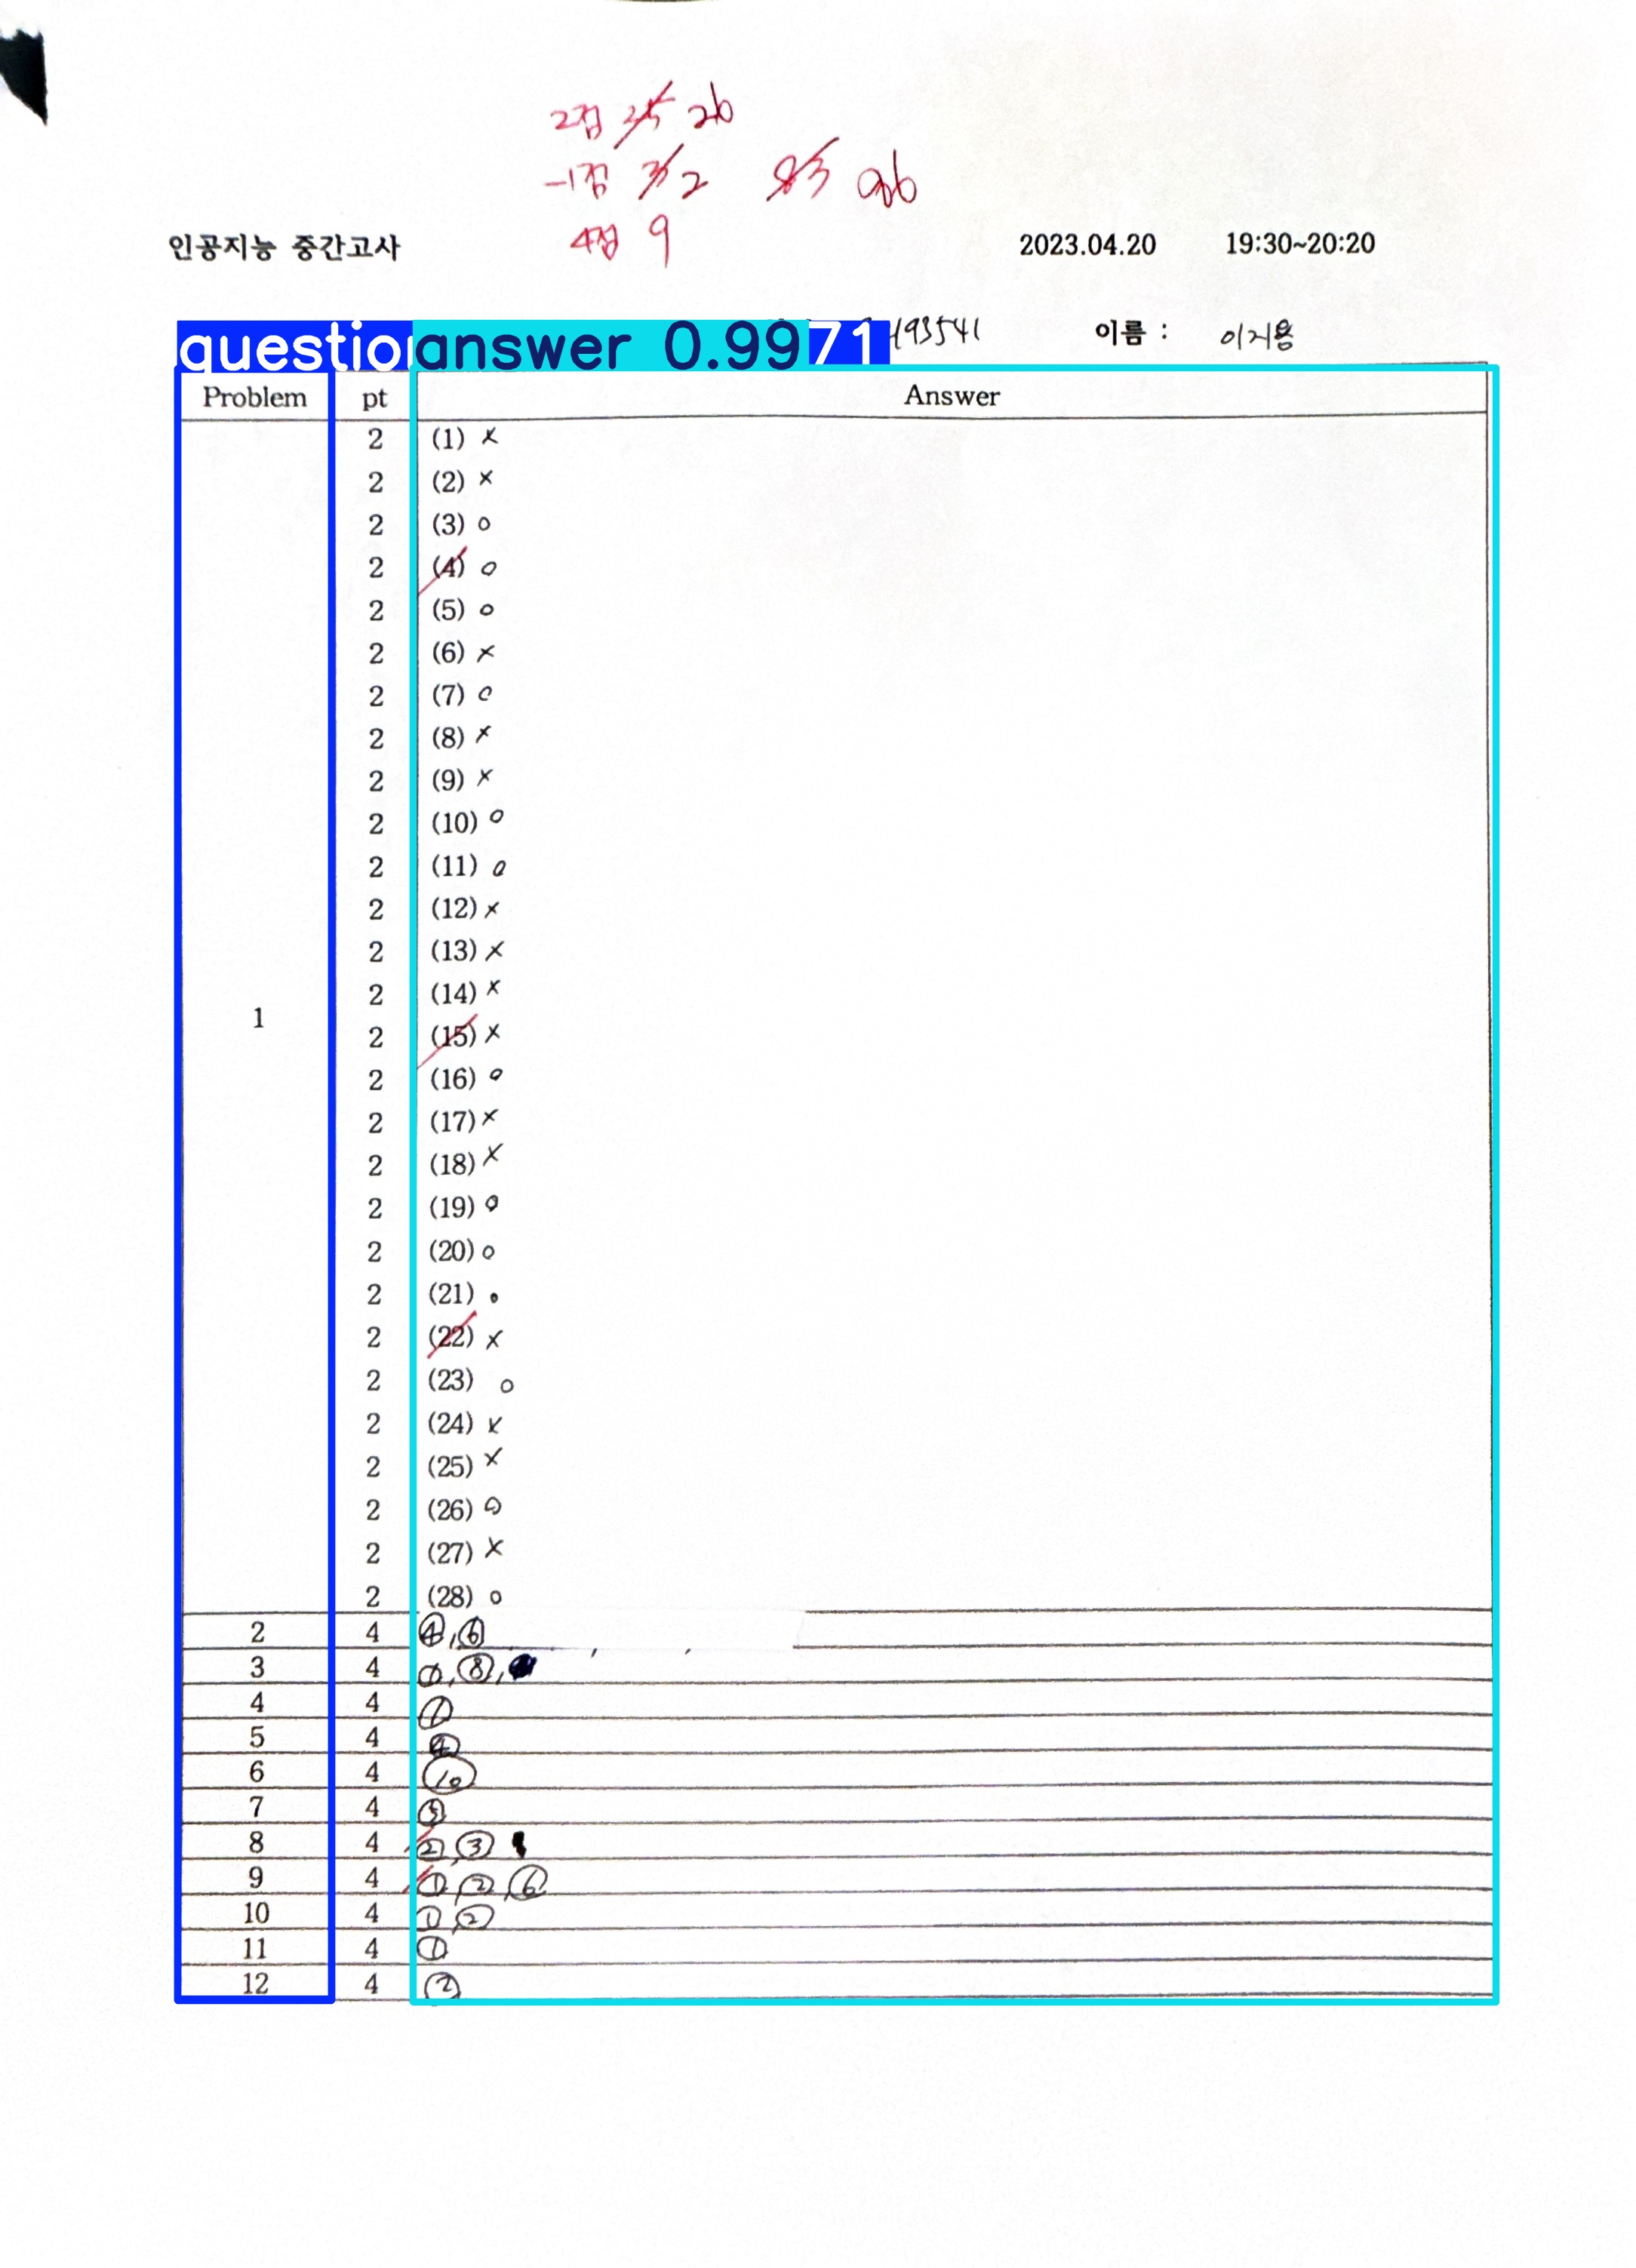 2점 26
-1점 2
4점 9
인공지능 중간고사 2023.04.20 19:30~20:20
questio answer 0.99 71 493541 이름 : 이지용
Problem pt Answer
2 (1) ×
2 (2) ×
2 (3) ○
2 (4) ○
2 (5) ○
2 (6) ×
2 (7) ○
2 (8) ×
2 (9) ×
2 (10) ○
2 (11) ○
2 (12) ×
2 (13) ×
2 (14) ×
1 2 (15) ×
2 (16) ○
2 (17) ×
2 (18) ×
2 (19) ○
2 (20) ○
2 (21) ○
2 (22) ×
2 (23) ○
2 (24) ×
2 (25) ×
2 (26) ○
2 (27) ×
2 (28) ○
2 4 ④, ⑥
3 4 ①, ⑧,
4 4 ①
5 4 ④
6 4 ⑩
7 4 ⑤
8 4 ②, ③
9 4 ①, ②, ⑥
10 4 ①, ②
11 4 ①
12 4 ②